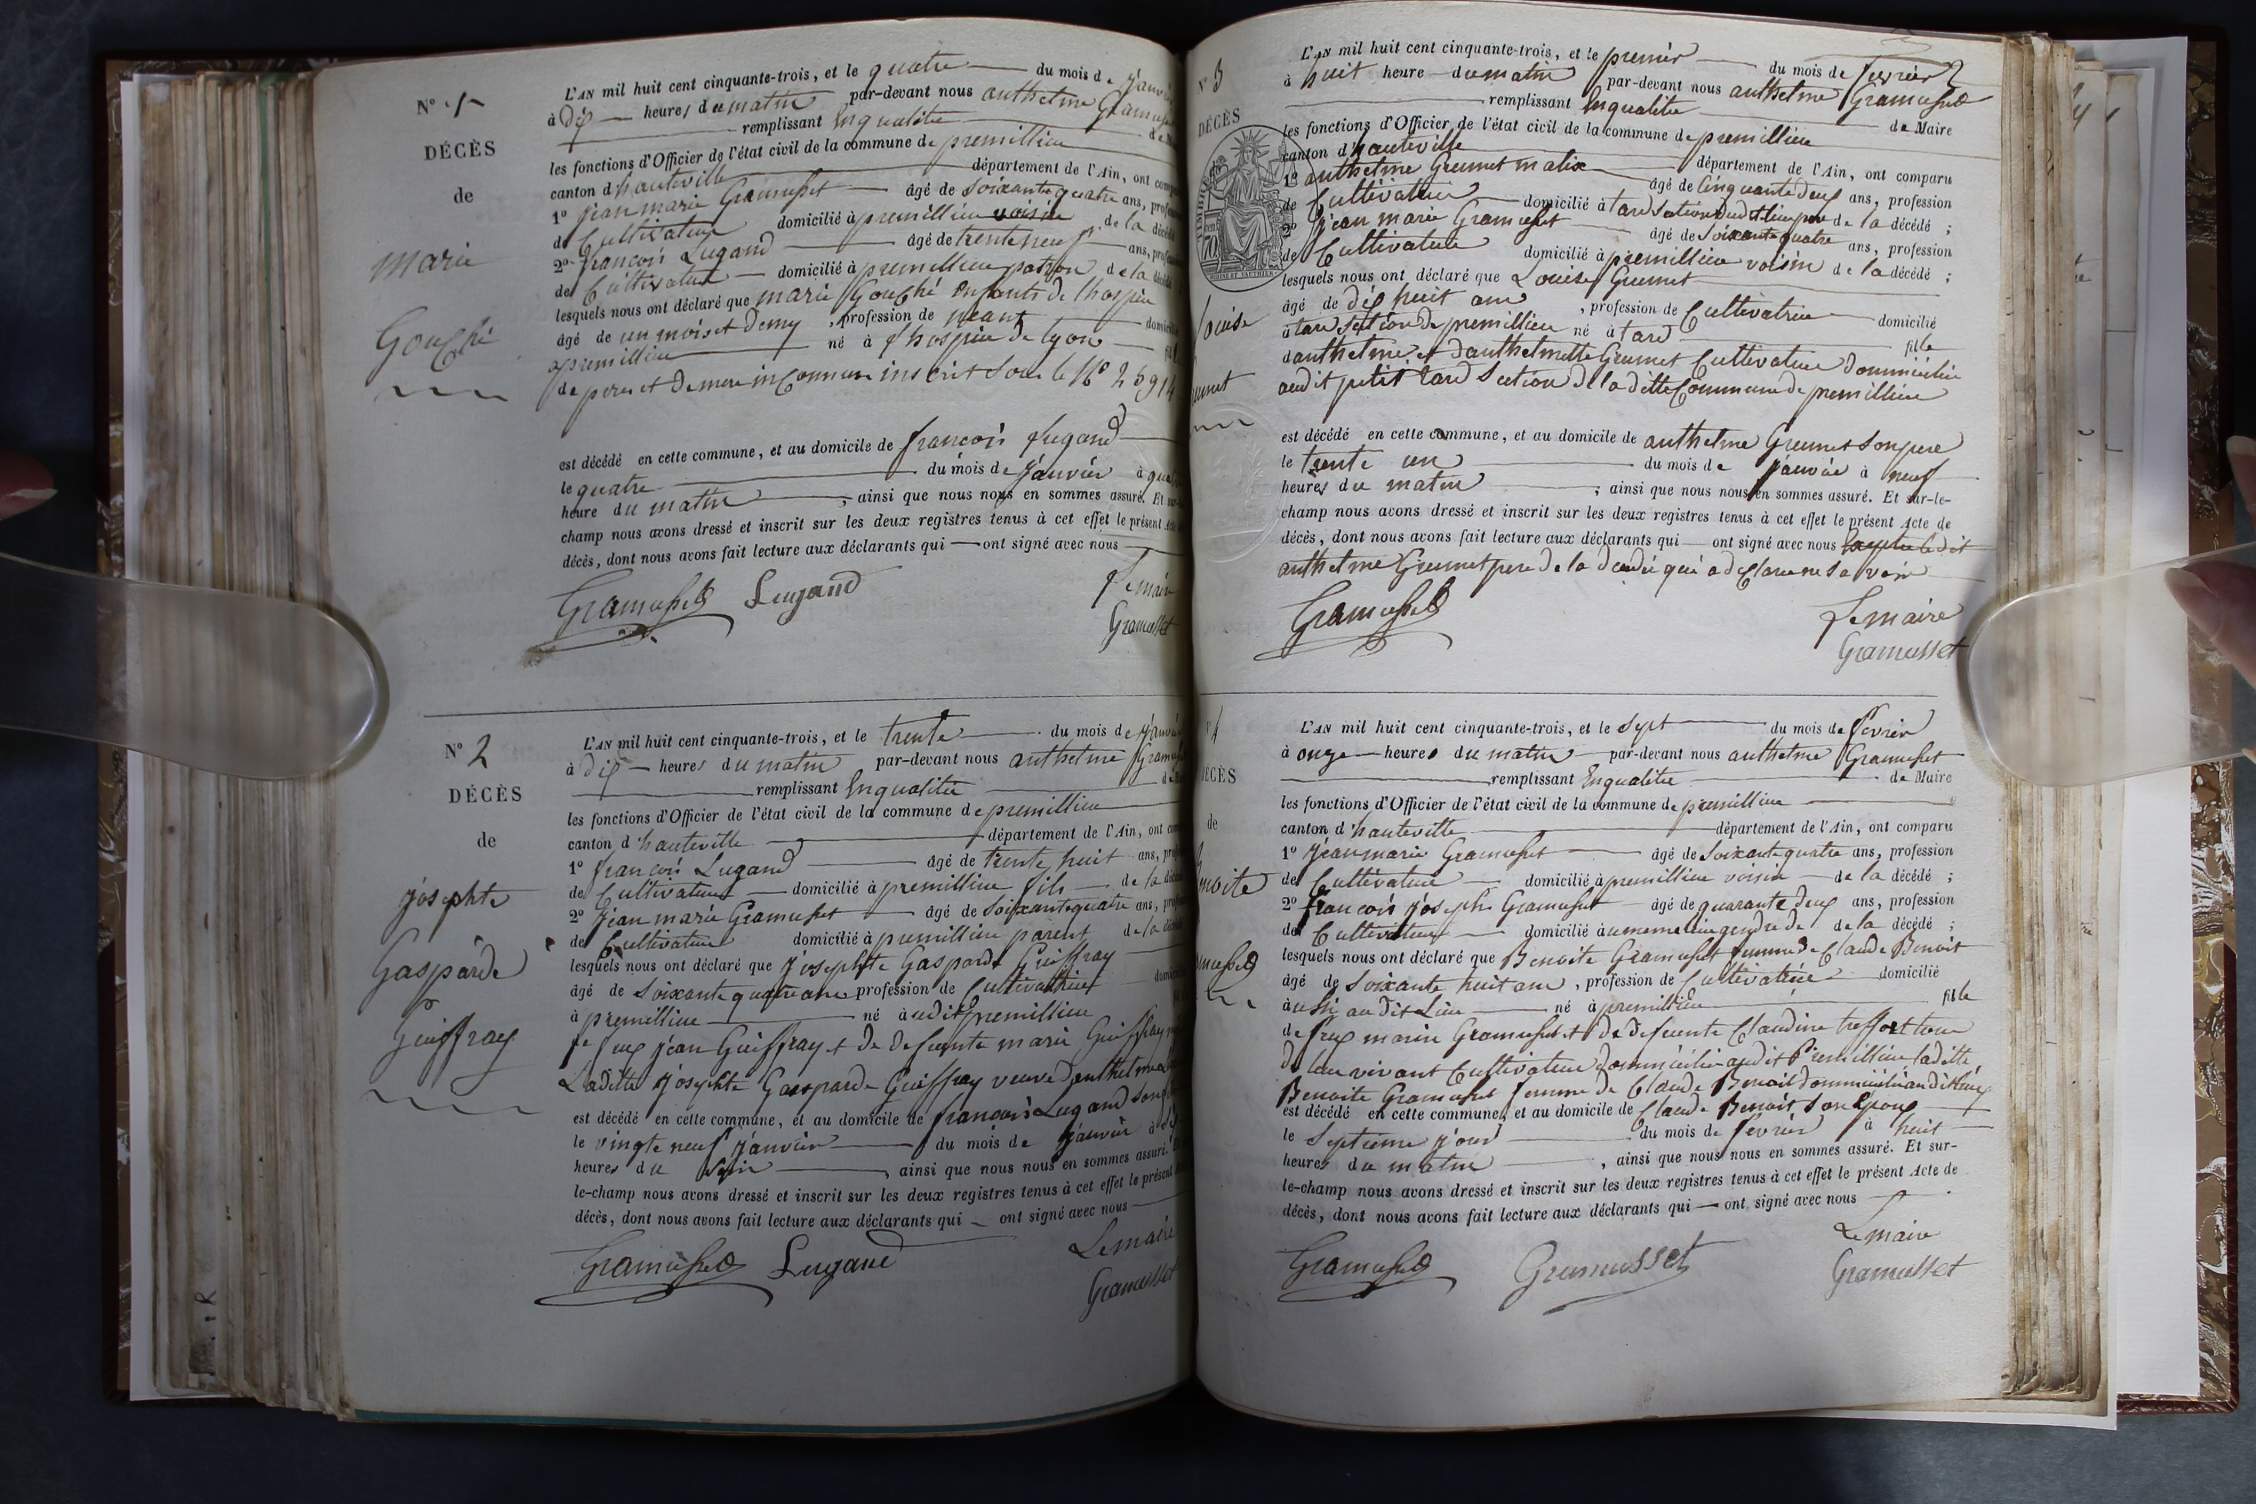 N° 1
DÉCÈS
de
marie
Gouché
L'AN mil huit cent cinquante-trois, et le quatre du mois de Janvi
à dix heures du matin par-devant nous anthelme Gramusset
remplissant En qualitee de M
les fonctions d'Officier de l'état civil de la commune de premillieu
canton d'hauteville département de l'Ain, ont comp
1° jean marie Gramusset âgé de soixante quatre ans, profes
de Cultivateur domicilié à premillieu voisin de la décédé
2° francois Lugand âgé de trente neuf ans, profes
de Cultivateur domicilié à premillieu patron de la décédé
lesquels nous ont déclaré que marie Gouché enfants de l'hospice
âgé de un mois et demy, profession de néant domicilié
a premillieu né à l'hospice de lyon fil
de pere et de mere inconnue inscrit sous le N° 25914
est décédé en cette commune, et au domicile de francois lugand
le quatre du mois de Janvier à qua
heure du matin, ainsi que nous nous en sommes assuré. Et sur
champ nous avons dressé et inscrit sur les deux registres tenus à cet effet le présent Acte
décès, dont nous avons fait lecture aux déclarants qui ont signé avec nous
Gramusset Lugand Le maire
Gramusset
N° 2
DÉCÈS
de
josephte
Gasparde
Guiffray
L'AN mil huit cent cinquante-trois, et le trente du mois de Janvi
à dix heures du matin par-devant nous anthelme Gramusset
remplissant En qualitee de
les fonctions d'Officier de l'état civil de la commune de premillieu
canton d'hauteville département de l'Ain, ont com
1° francois Lugand âgé de trente huit ans, prof
de Cultivateur domicilié à premillieu fils de la décédé
2° jean marie Gramusset âgé de soixante quatre ans, prof
de Cultivateur domicilié à premillieu parent de la décédé
lesquels nous ont déclaré que josephte Gasparde Guiffray
âgé de soixante quatre ans profession de Cultivatrice domicilié
à premillieu né à udit premillieu
de feu jean Guiffray et de defuente marie Guiffray
Laditte josephte Gasparde Guiffray veuve d'anthelme
est décédé en cette commune, et au domicile de francois Lugand son
le vingte neuf janvier du mois de janvier à
heures du soir, ainsi que nous nous en sommes assuré.
le-champ nous avons dressé et inscrit sur les deux registres tenus à cet effet le présent
décès, dont nous avons fait lecture aux déclarants qui ont signé avec nous
Gramusset Lugand Le maire
Gramusset
N° 3
DÉCÈS
Louise
L'AN mil huit cent cinquante-trois, et le premier du mois de fevrier
à huit heure du matin par-devant nous anthelme Gramusset
remplissant En qualitee de Maire
les fonctions d'Officier de l'état civil de la commune de premillieu
canton d'hauteville département de l'Ain, ont comparu
1° anthelme Grumet malix âgé de cinquante deux ans, profession
de Cultivateur domicilié à tard section dudit lieu pere de la décédé ;
2° jean marie Gramusset âgé de soixante quatre ans, profession
de Cultivateur domicilié à premillieu voisin de la décédé ;
lesquels nous ont déclaré que Louise Grumet
âgé de dix huit ans, profession de Cultivatrice domicilié
à tard section de premillieu né à tard fille
d'anthelme et d'anthelmette Grumet Cultivateur domicilié
audit petit tard section de la ditte Commune de premillieu
est décédé en cette commune, et au domicile de anthelme Grumet son pere
le trente un du mois de janvier à neuf
heures du matin ; ainsi que nous nous en sommes assuré. Et sur-le-
champ nous avons dressé et inscrit sur les deux registres tenus à cet effet le présent Acte de
décès, dont nous avons fait lecture aux déclarants qui ont signé avec nous le dit
anthelme Grumet pere de la décédé qui a déclaré ne savoir
Gramusset Le maire
Gramusset
N° 4
DÉCÈS
de
L'AN mil huit cent cinquante-trois, et le sept du mois de fevrier
à onze heures du matin par-devant nous anthelme Gramusset
remplissant En qualitee de Maire
les fonctions d'Officier de l'état civil de la commune de premillieu
canton d'hauteville département de l'Ain, ont comparu
1° jean marie Gramusset âgé de soixante quatre ans, profession
de Cultivateur domicilié à premillieu voisin de la décédé ;
2° francois joseph Gramusset âgé de quarante deux ans, profession
de Cultivateur domicilié à u meme lieu gendre de de la décédé ;
lesquels nous ont déclaré que Benoite Gramusset femme de Claude Benoit
âgé de soixante huit ans, profession de Cultivatrice domicilié
aussi au dit Lieu né à premillieu fille
de feux marin Gramusset et de defuente Claudine treffort
de leur vivant Cultivateur domicilié audit Premillieu laditte
Benoite Gramusset femme de Claude Benoit domicilié au dit lieu
est décédé en cette commune, et au domicile de Claude Benoit son Epoux
le septieme jour du mois de fevrier à huit
heures du matin, ainsi que nous nous en sommes assuré. Et sur-
le-champ nous avons dressé et inscrit sur les deux registres tenus à cet effet le présent Acte de
décès, dont nous avons fait lecture aux déclarants qui ont signé avec nous
Gramusset Gramusset Le maire
Gramusset